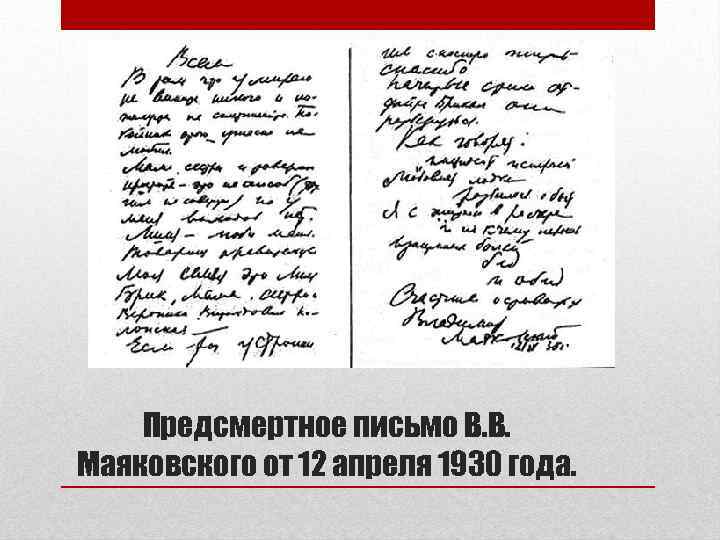 Всем
В том что умираю
не вините никого и по-
жалуйста не сплетничайте. По-
койник этого ужасно не
любил.
Мама, сестры и товарищи
простите – это не способ (дру-
гим не советую) но у
меня выходов нет.
Лиля – люби меня.
Товарищ правительство
моя семья это Лиля
Брик, мама, сестры и
Вероника Витольдовна По-
лонская.
Если ты устроишь
им сносную жизнь –
спасибо
Начатые стихи от-
дайте Брикам они
разберутся.
Как говорят:
инцидент исперчен
любовная лодка
разбилась о быт
Я с жизнью в расчете
и не к чему перечень
взаимных болей
бед
и обид
Счастливо оставаться
Владимир
Маяковский
12/IV 30г.
Предсмертное письмо В.В.
Маяковского от 12 апреля 1930 года.